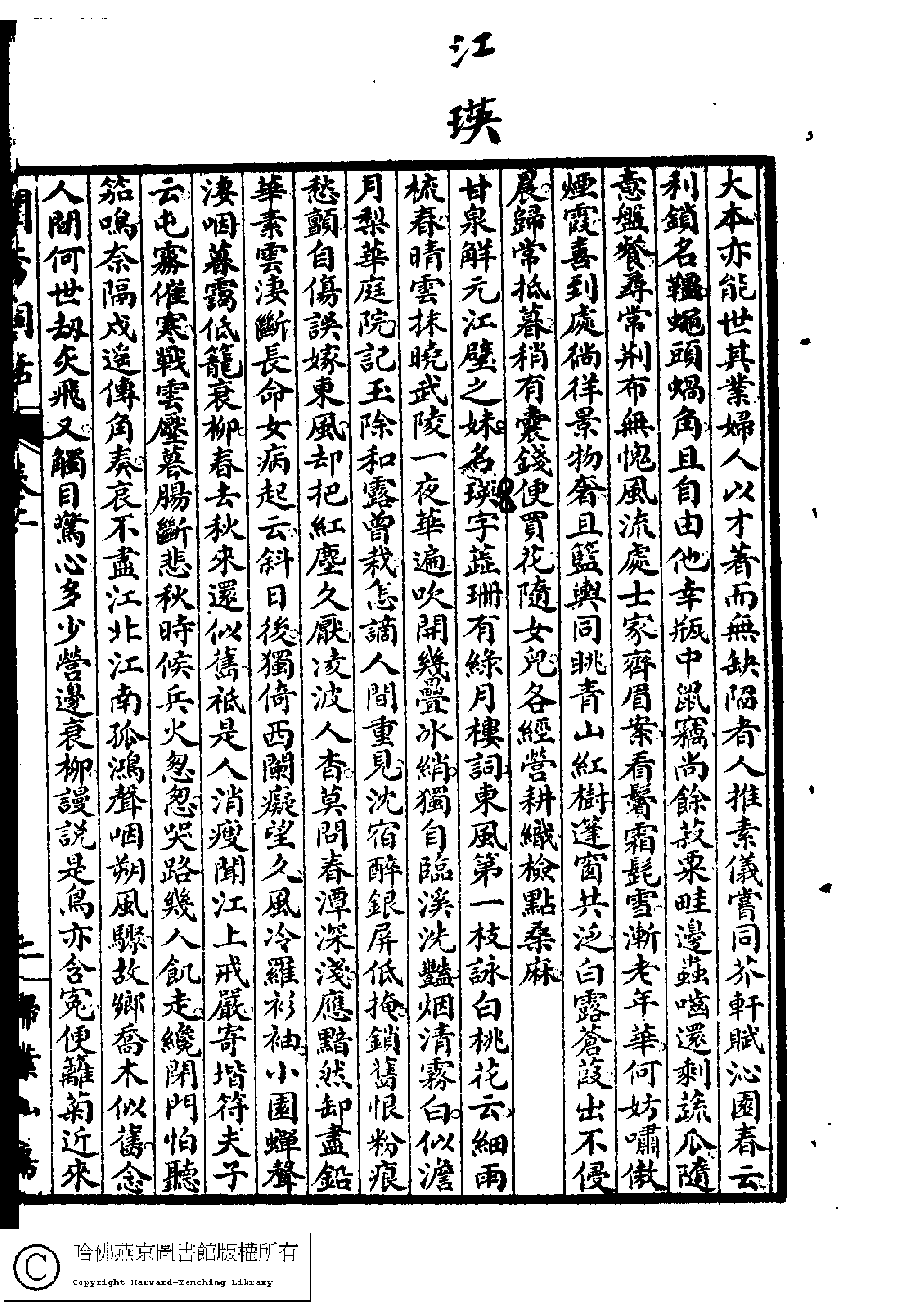 江瑛
大本亦能世其業婦人以才著而無缺陷者人推素儀嘗同芥軒賦沁園春云
利鎖名韁蠅頭蝸角且自由他幸瓶中鼠竊尚餘菽粟畦邊蟲嚙還剩蔬瓜隨
意盤餐尋常荆布無愧風流處士家齊眉案看鬢霜髭雪漸老年華何妨嘯傲
煙霞喜到處徜徉景物奢且籃輿同眺青山紅樹篷窗共泛白露蒼葭出不侵
晨歸常抵暮稍有囊錢便買花隨女兒各經營耕織檢點桑麻
甘泉解元江璧之妹名瑛字蕋珊有綠月樓詞東風第一枝詠白桃花云細雨
梳春晴雲抹曉武陵一夜華遍吹開幾疊冰綃獨自臨溪洗豔烟清霧白似澹
月梨華庭院記玉除和露曾栽怎謫人間重見沈宿醉銀屏低掩鎖舊恨粉痕
愁顫自傷誤嫁東風却把紅塵久厭凌波人杳莫問春潭深淺應黯然卸盡鉛
華素雲淒斷長命女病起云斜日後獨倚西闌癡望久風冷羅衫袖小園蟬聲
淒咽暮靄低籠衰柳春去秋來還似舊祗是人消瘦聞江上戒嚴寄堦符夫子
云屯霧催寒戰雲壓暮腸斷悲秋時候兵火怱怱哭路幾人飢走纔閉門怕聽
笳鳴奈隔戍遥傳角奏哀不盡江北江南孤鴻聲咽朔風驟故鄉喬木似舊念
人間何世刼灰飛又觸目驚心多少營邊衰柳謾説是鳥亦含冤便籬菊近來
哈佛燕京圖書館版權所有
Copyright Harvard-Yenching Library